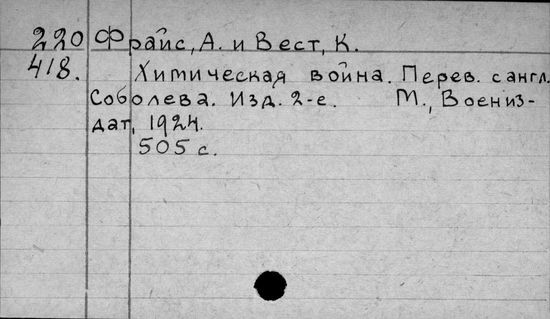 220 Фрайс, А. и Вест, К.
418. Химическая война. Перев. с англ.
Соболева. Изд. 2-е. М., Воениз-
дат, 1924.
505 с.